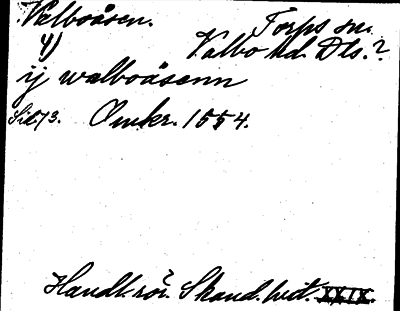 Valboåsen. Torps sn.
4) Valbo hd. Dls.?
ij walboåsenn
Sid 73. Omkr. 1554.
Handl. rör. Skand. hist. XXIX.